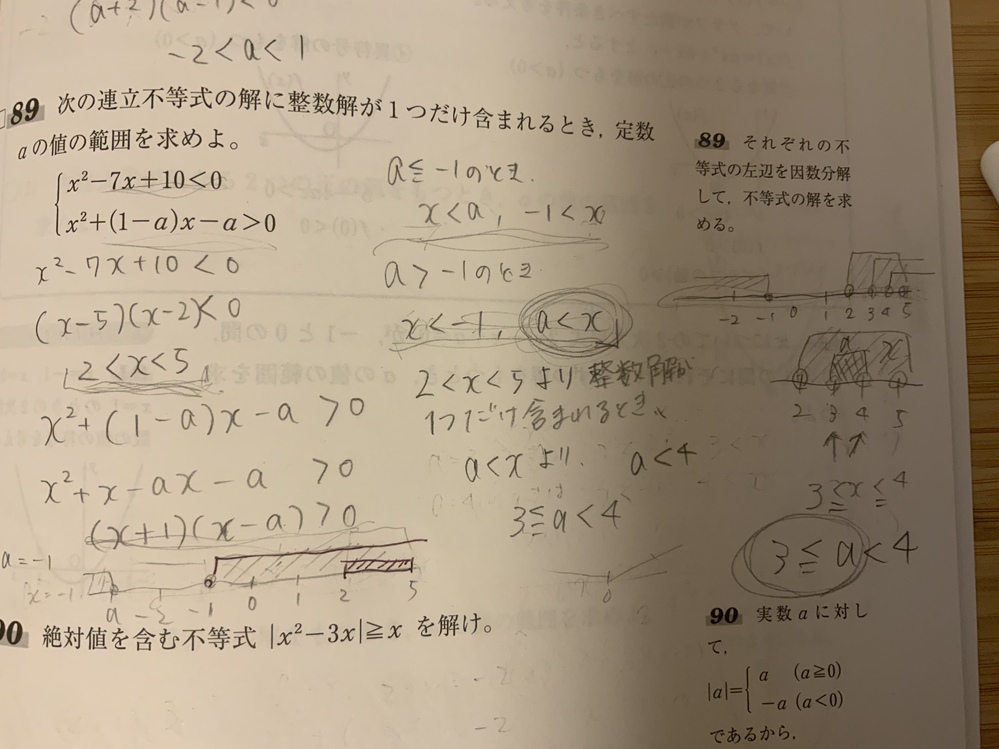 (a+2)(a-1)<0
-2<a<1
89 次の連立不等式の解に整数解が1つだけ含まれるとき，定数
aの値の範囲を求めよ。
x²-7x+10<0
x²+(1-a)x-a>0
x²-7x+10<0
(x-5)(x-2)<0
2<x<5
x²+(1-a)x-a>0
x²+x-ax-a>0
(x+1)(x-a)>0
a=-1
x=-1
a -2 -1 0 1 2 5
a≦-1のとき．
x<a, -1<x
a>-1のとき
x<-1, a<x
2<x<5より 整数解が
1つだけ含まれるとき、
a<xより． a<4
3≦a<4
0
89 それぞれの不
等式の左辺を因数分解
して，不等式の解を求
める。
-2 -1 0 1 2 3 4 5
a x
2 3 4 5
3≦x≦4
3≦a<4
90 絶対値を含む不等式 |x²-3x|≧x を解け。
90 実数aに対し
て，
|a|={ a (a≧0)
-a (a<0)
であるから，
-2